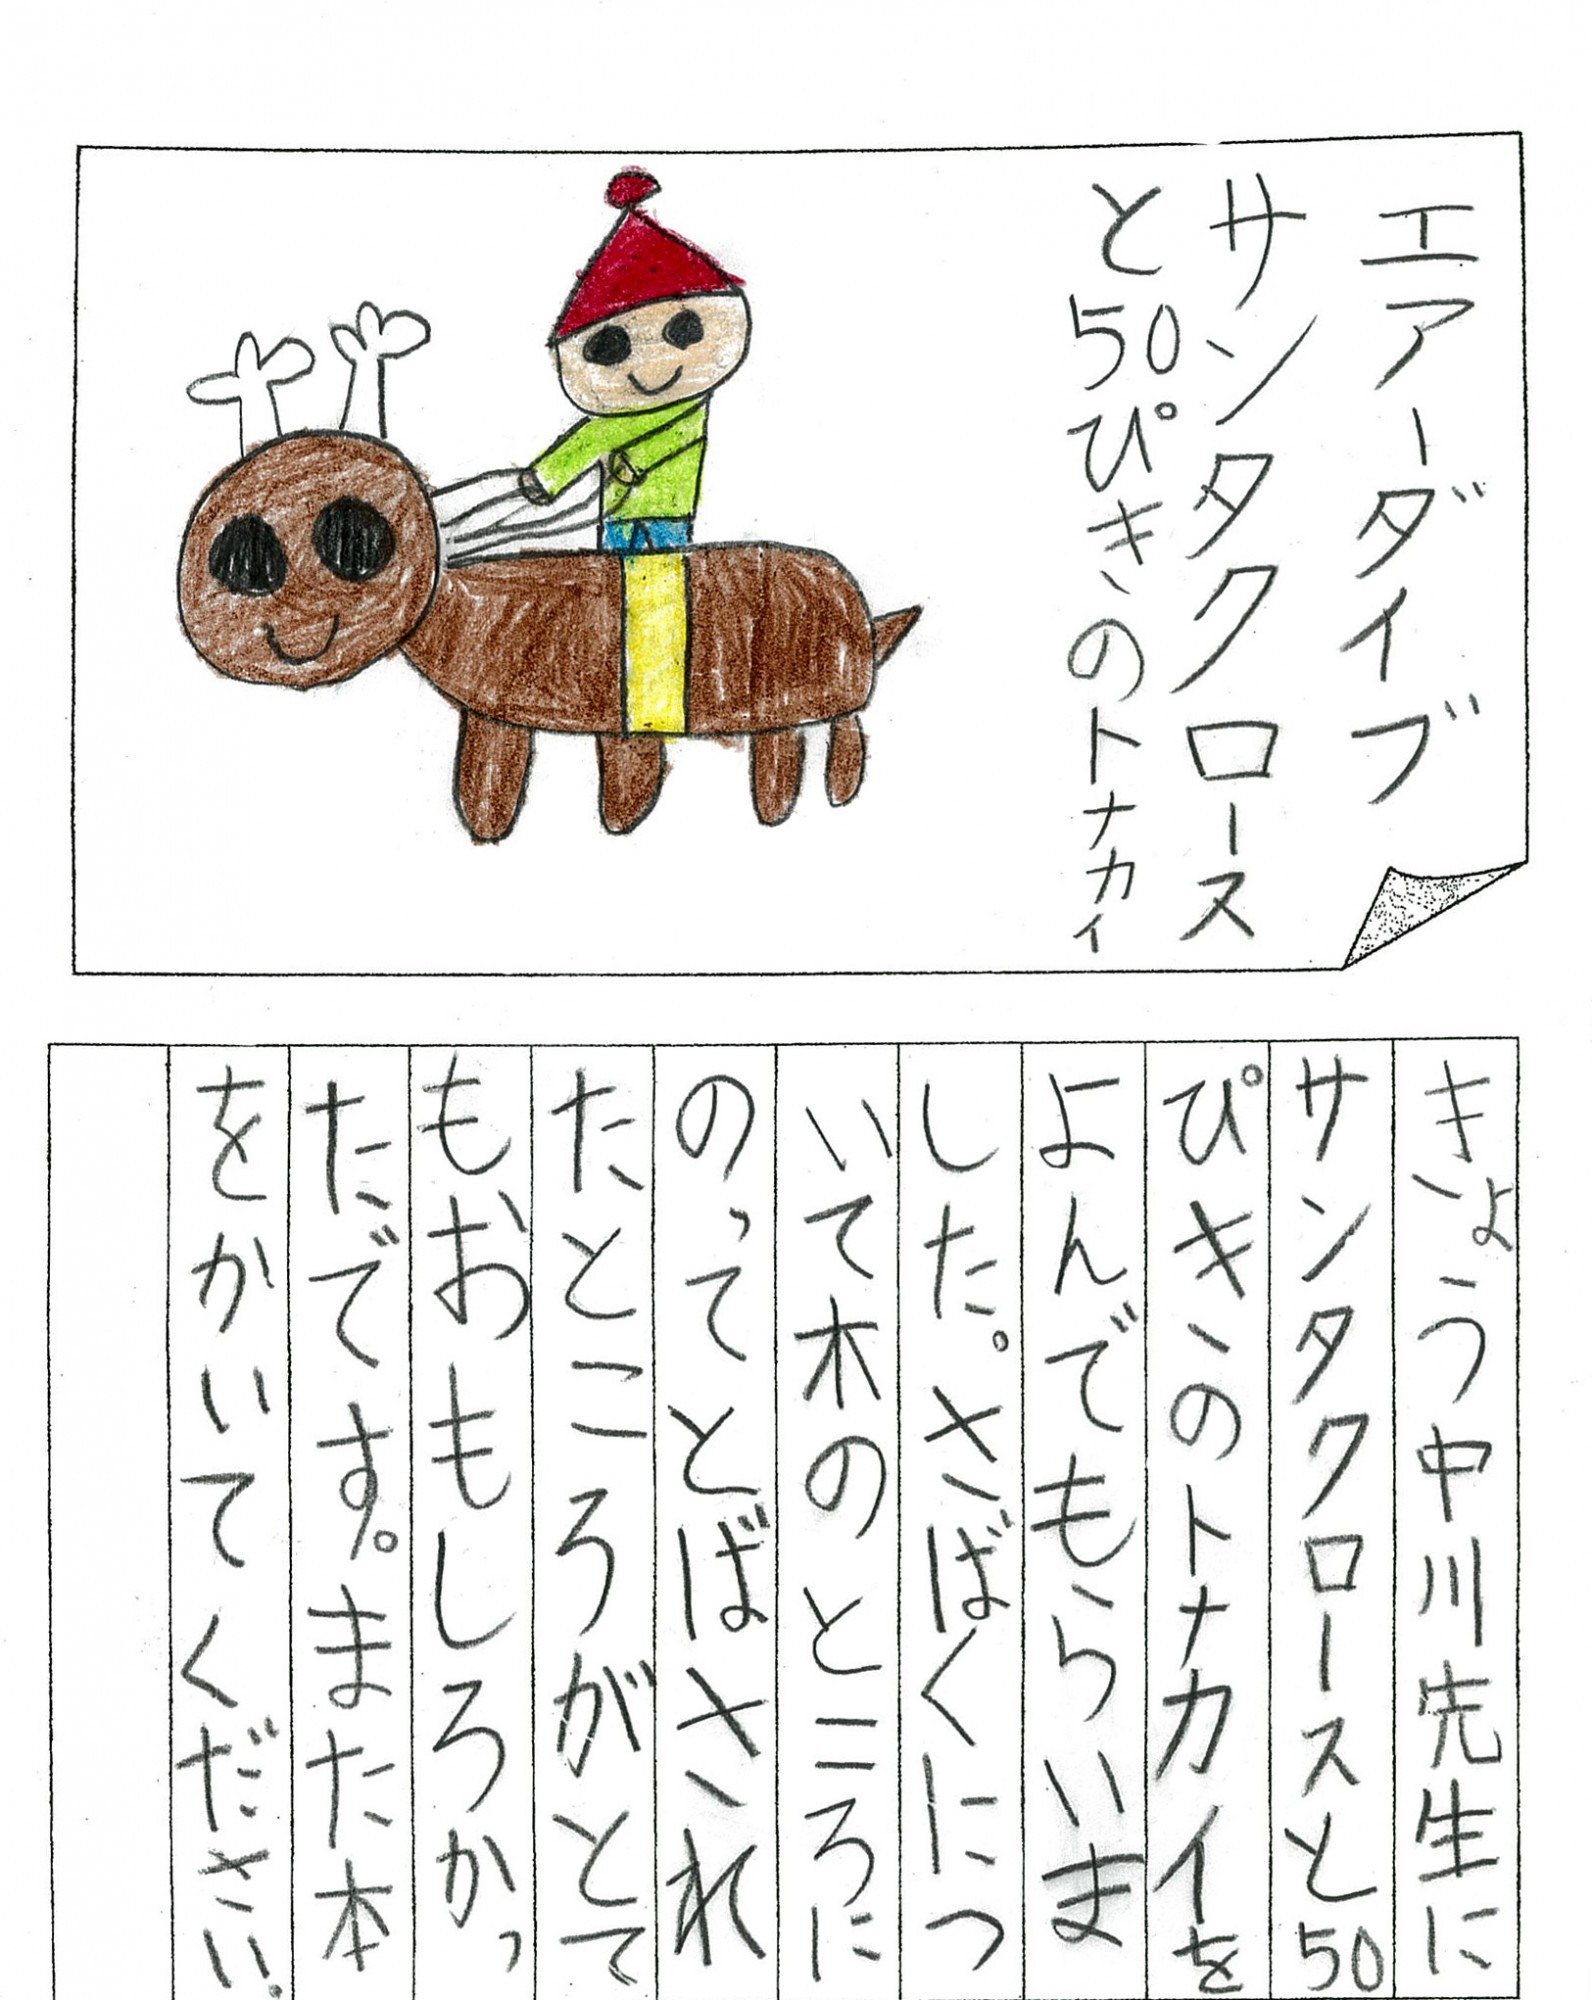 エアーダイブ
サンタクロース
と50ぴきのトナカイ
きょう中川先生に
サンタクロースと50
ぴきのトナカイを
よんでもらいま
した。さばくにつ
いて木のところに
のってとばされ
たところがとて
もおもしろかっ
たです。また本
をかいてください。